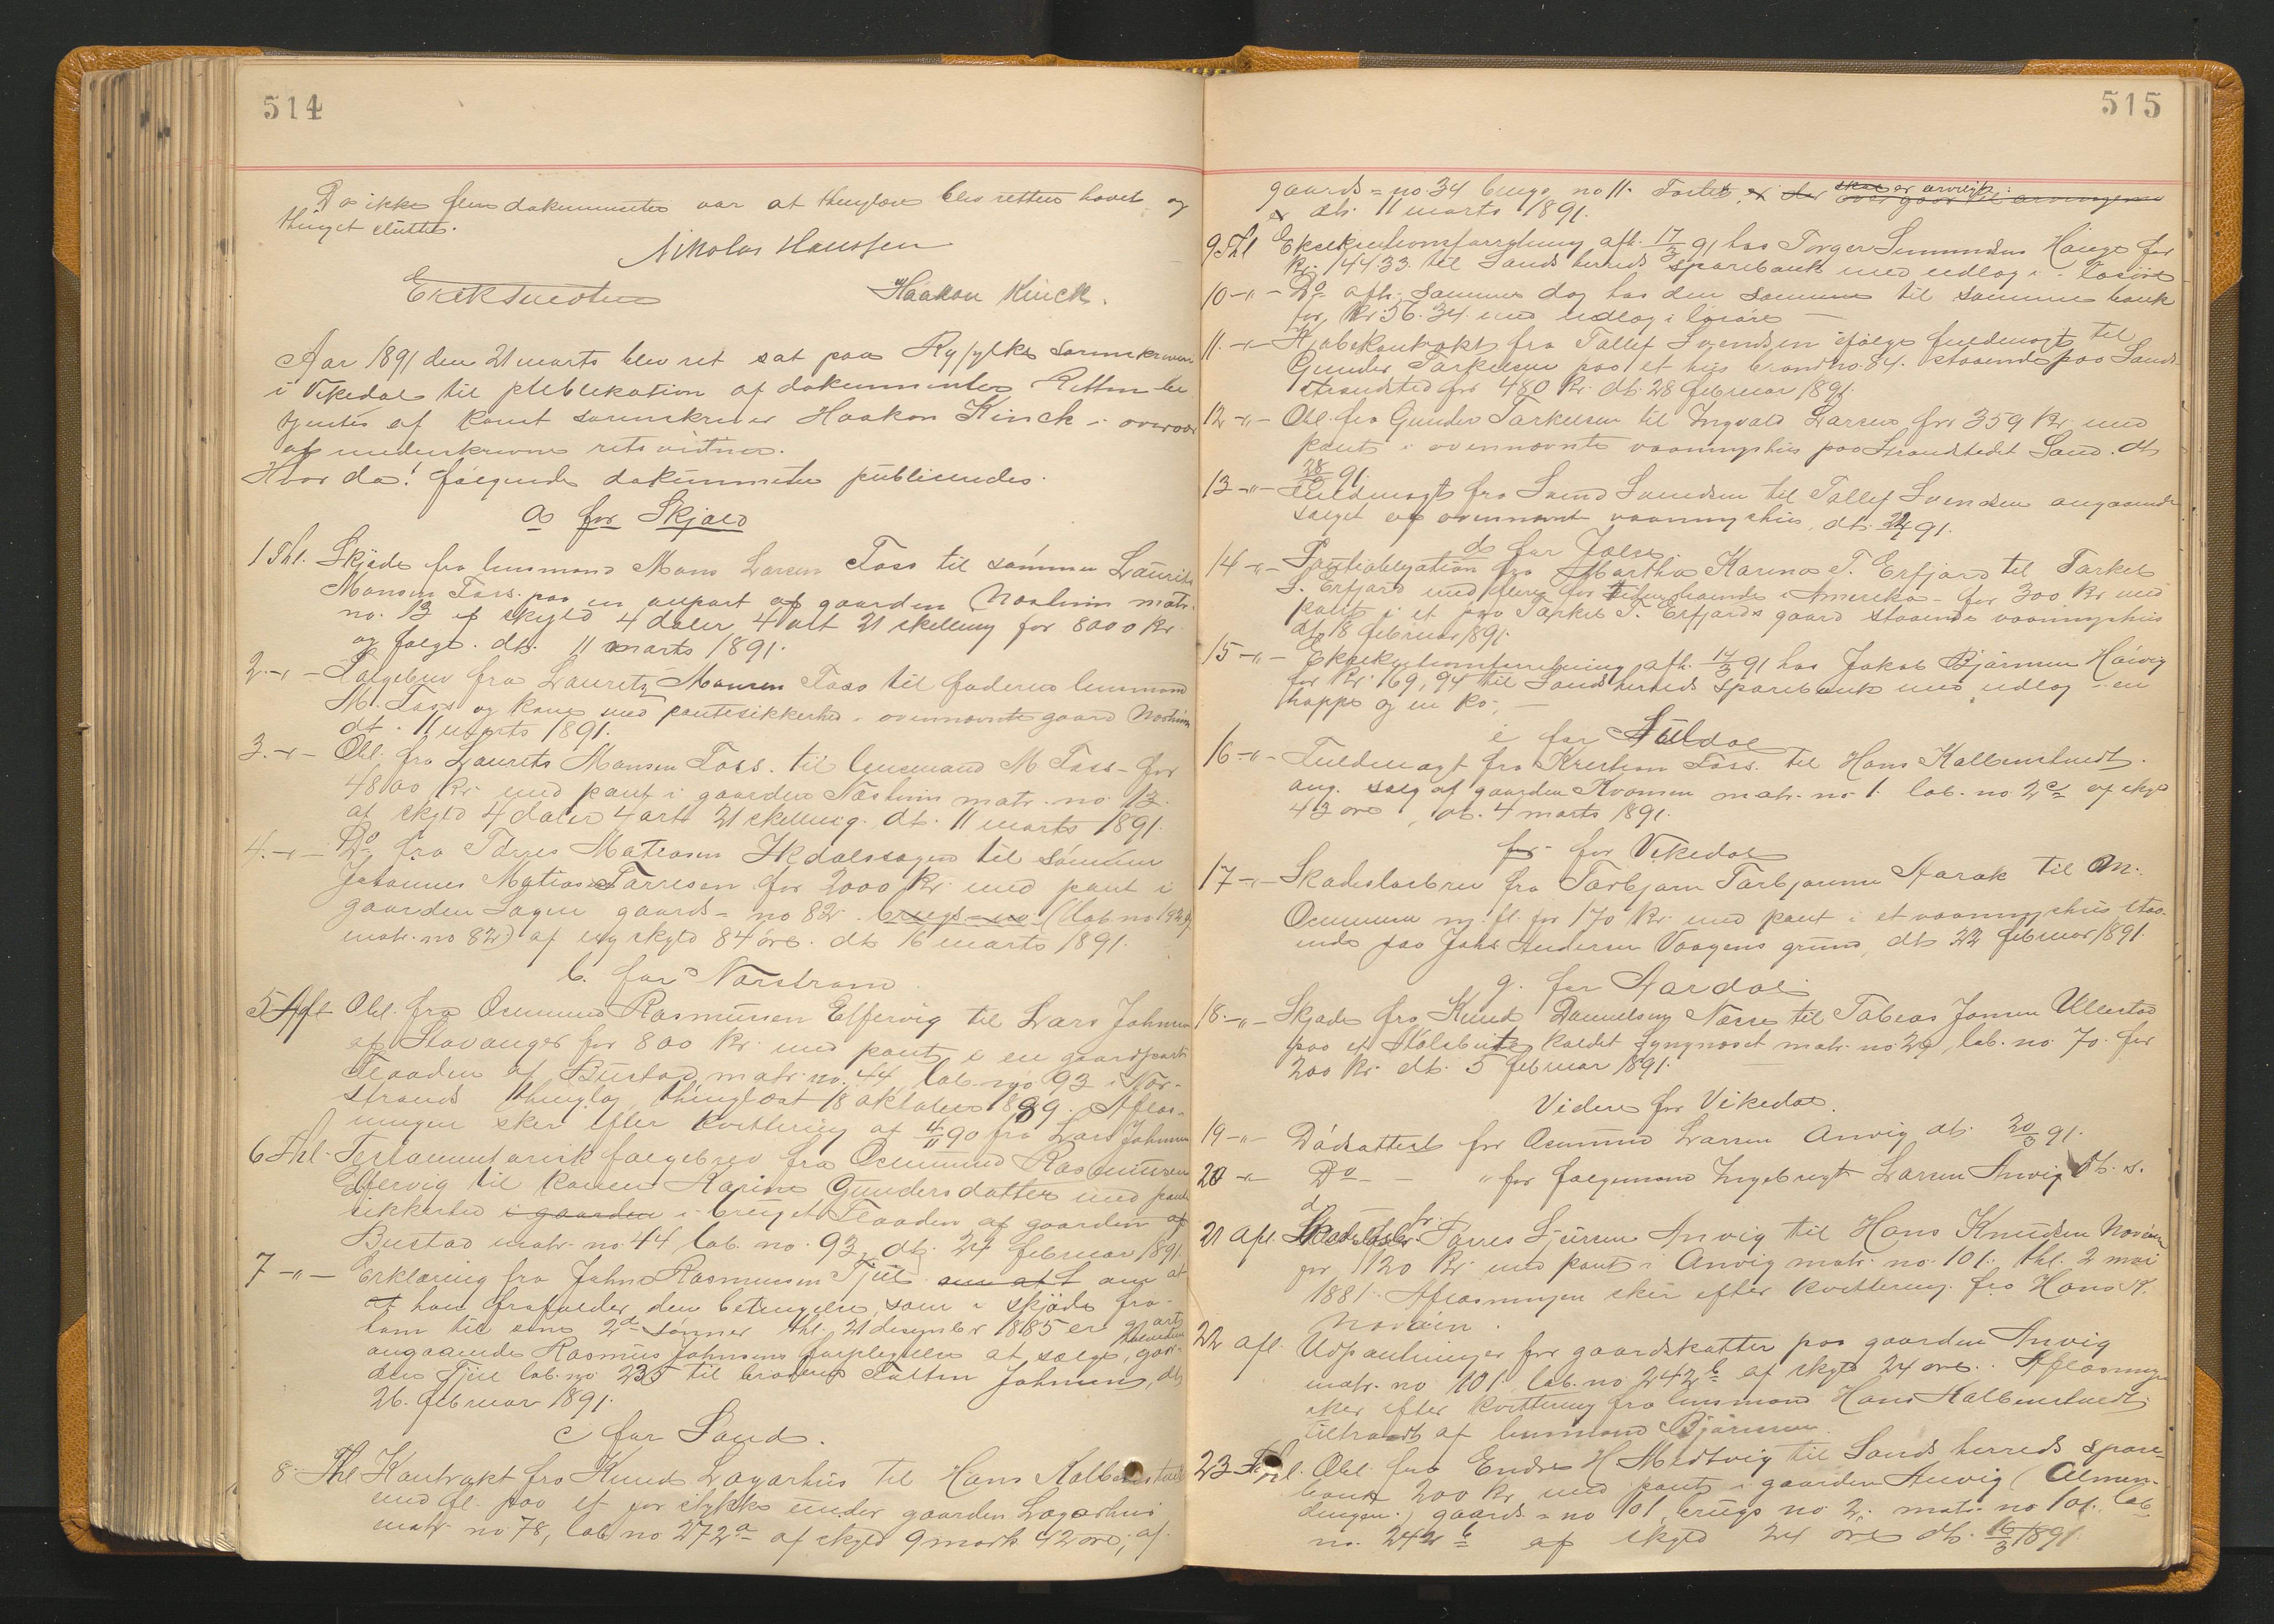 514
Da ikke flere dokumenter var at thinglæse blev retten hævet og
thinget sluttet.
Nikolas Hanssen
Haakon Kinck.
Aar 1891 den 21 marts blev ret sat paa Ryfylke sorenskriveri
i Vikedal til publikation af dokumenter. Retten be
tjentes af konst sorenskriver Haakon Kinck i overvær
af underskrevne retsvidner.
Hvor da! følgende dokumenter publiceredes.
a for Skjold
1 Thl. Skjøde fra lensmand Mons Larsen Foss til sønnen Laurits
Monsen Foss. paa en anpart af gaarden matr.
no. 13 af skyld 4 daler 4 ort 21 skilling for 8000 kr.
og følge. dt. 11 marts 1891.
2.-"- Følgebrev fra Lauritz Monsen Foss til faderen lensmand
M. Foss og kone med pantesikkerhed i ovennævnte gaard
dt. 11 marts 1891.
3.-"- Obl. fra Laurits Monsen Foss. til lensmand M Foss - for
4800 kr. med pant i gaarden matr. no. 13.
af skyld 4 daler 4 ort 21 skilling. dt. 11 marts 1891.
4.-"- Do fra Tørres Matiasen til sønnen
Johannes Matias Tørresen for 2000 kr. med pant i
gaarden Sagen gaards-no 82. brugs-no (lab. no 192
matr. no 82) af ny skyld 84 øre. dt. 16 marts 1891.
b. for Nærstrand
5 Afl Obl. fra Osmund Rasmussen Elfervig til Lars Johnsen
af Stavanger for 800 kr. med pant i en gaardpart
Flaaden af Bustad, matr. no. 44 lab. no 93 i Nær-
strands thinglag, thinglæst 18 oktober 1889. Aflæs-
ningen sker efter kvittering af 4/11 90 fra Lars Johnsen
6 Thl. Testamentarisk følgebrev fra Osmund Rasmussen
Elfervig til konen Karine Gundersdatter med pant
sikkerhed i gaarden i bruget Flaaden af gaarden af
Bustad matr. no. 44 lab. no. 93, dt. 24 februar 1891.
7 -"- Erklæring fra John Rasmussen om at
at han frafalder den betingelse, som i skjøde fra
ham til sine 2de sønner thl. 21 desember 1885 er gjort
angaaende Rasmus Johnsens forpligtelse at sælge gaar-
den lab. no 235 til broderen Johnsen, dt
26. februar 1891.
c for Sand.
8. Thl Kontrakt fra Knud Lagarhus til Hans
med fl. paa et jor stykke under gaarden Lagarhus
matr. no 78, lab. no 272a af skyld 9 mark 42 øre, af
515
gaards-no. 34 brugs no 11.
dt. 11 marts 1891.
9 Thl Eksekutionsforretning afh. 17/3 91 hos Torger for
Kr. 144.33 til Sands herreds sparebank med udlæg i løsøre
10 -"- Do afh. samme dag hos den samme til samme bank
for Kr. 56.34 med udlæg i løsøre
11. -"- Kjøbekontrakt fra Tallef Svendsen ifølge fuldmagt til
Gunder Tarkelsen paa et hus brand no. 84. staaende paa Sands
strandsted for 480 Kr. dt. 28 februar 1891.
12 -"- Obl. fra Gunder Tarkelsen til Ingvald Larsen for 359 Kr. med
pant i ovennævnte vaaningshus paa Strandstedet Sand. dt
28/2 91.
13 -"- Fuldmagt fra Svend Svendsen til Tallef Svendsen angaaende
salget af ovennævnte vaaningshus, dt.
d for Jelse.
14 -"- Pantobligation fra Martha Karina T. Erfjord til Tarkel
S. Erfjord med flere for tiden boende i Amerika - for 300 Kr. med
pant i et paa Tarkel T. Erfjords gaard staaende vaaningshus
dt. 18 februar 1891.
15 -"- Eksekutionsforretning afh. 14/3 91 hos Jakob Bjørnsen
for Kr. 169,94 til Sands herreds sparebank med udlæg i en
hoppe og en ko.
e for Suldal
16 -"- Fuldmagt fra Kristian Foss. til Hans Kallemtvedt.
ang. salg af gaarden Kvamen matr. no 1. lab. no 2c af skyld
43 øre, dt. 4 marts 1891.
f for Vikedal
17 -"- Skadesløsbrev fra Tarbjørn Tarbjørnsen Aarak til M.
Osmundsen m. fl. for 170 Kr. med pant i et vaaningshus staa-
ende paa Johs Andersen Vaagens grund, dt. 22 februar 1891.
g. for Aardal
18. -"- Skjøde fra Knud Danielsen Næsse til Tobias Jonsen Ullestad
paa et kaldet matr. no 29, lab. no. 70. for
200 Kr. dt. 5 februar 1891.
Videre for Vikedal.
19 -"- Dødsattest for Osmund Larsen Anvig dt. 20/3 91.
20 -"- Do - " for følgemand Ingebrigt Larsen Anvig dt. s.
d
21 afl. Skadesløsbr. fr. Tørres Sjursen Anvig til Hans Knudsen
for 1120 Kr. med pant i Anvig matr. no. 101. thl. 2 mai
1881. Aflæsningen sker efter kvittering fra Hans K.
22 afl. Udpantninger for gaardskatter paa gaarden Anvig
matr. no 101 lab. no 242b af skyld 24 øre. Aflæsningen
sker efter kvittering fra lensmand Hans Kallemtvedt
tiltraadt af lensmand Bjørnsen.
23 Thl. Obl. fra Endre H Medtvig til Sands herreds spare-
bank 200 kr. med pant i gaarden Anvig (Almen-
dingen) gaards-no 101, brugs no 2. matr. no 101. lab
no. 242b af skyld 24 øre dt. 16/3 1891.